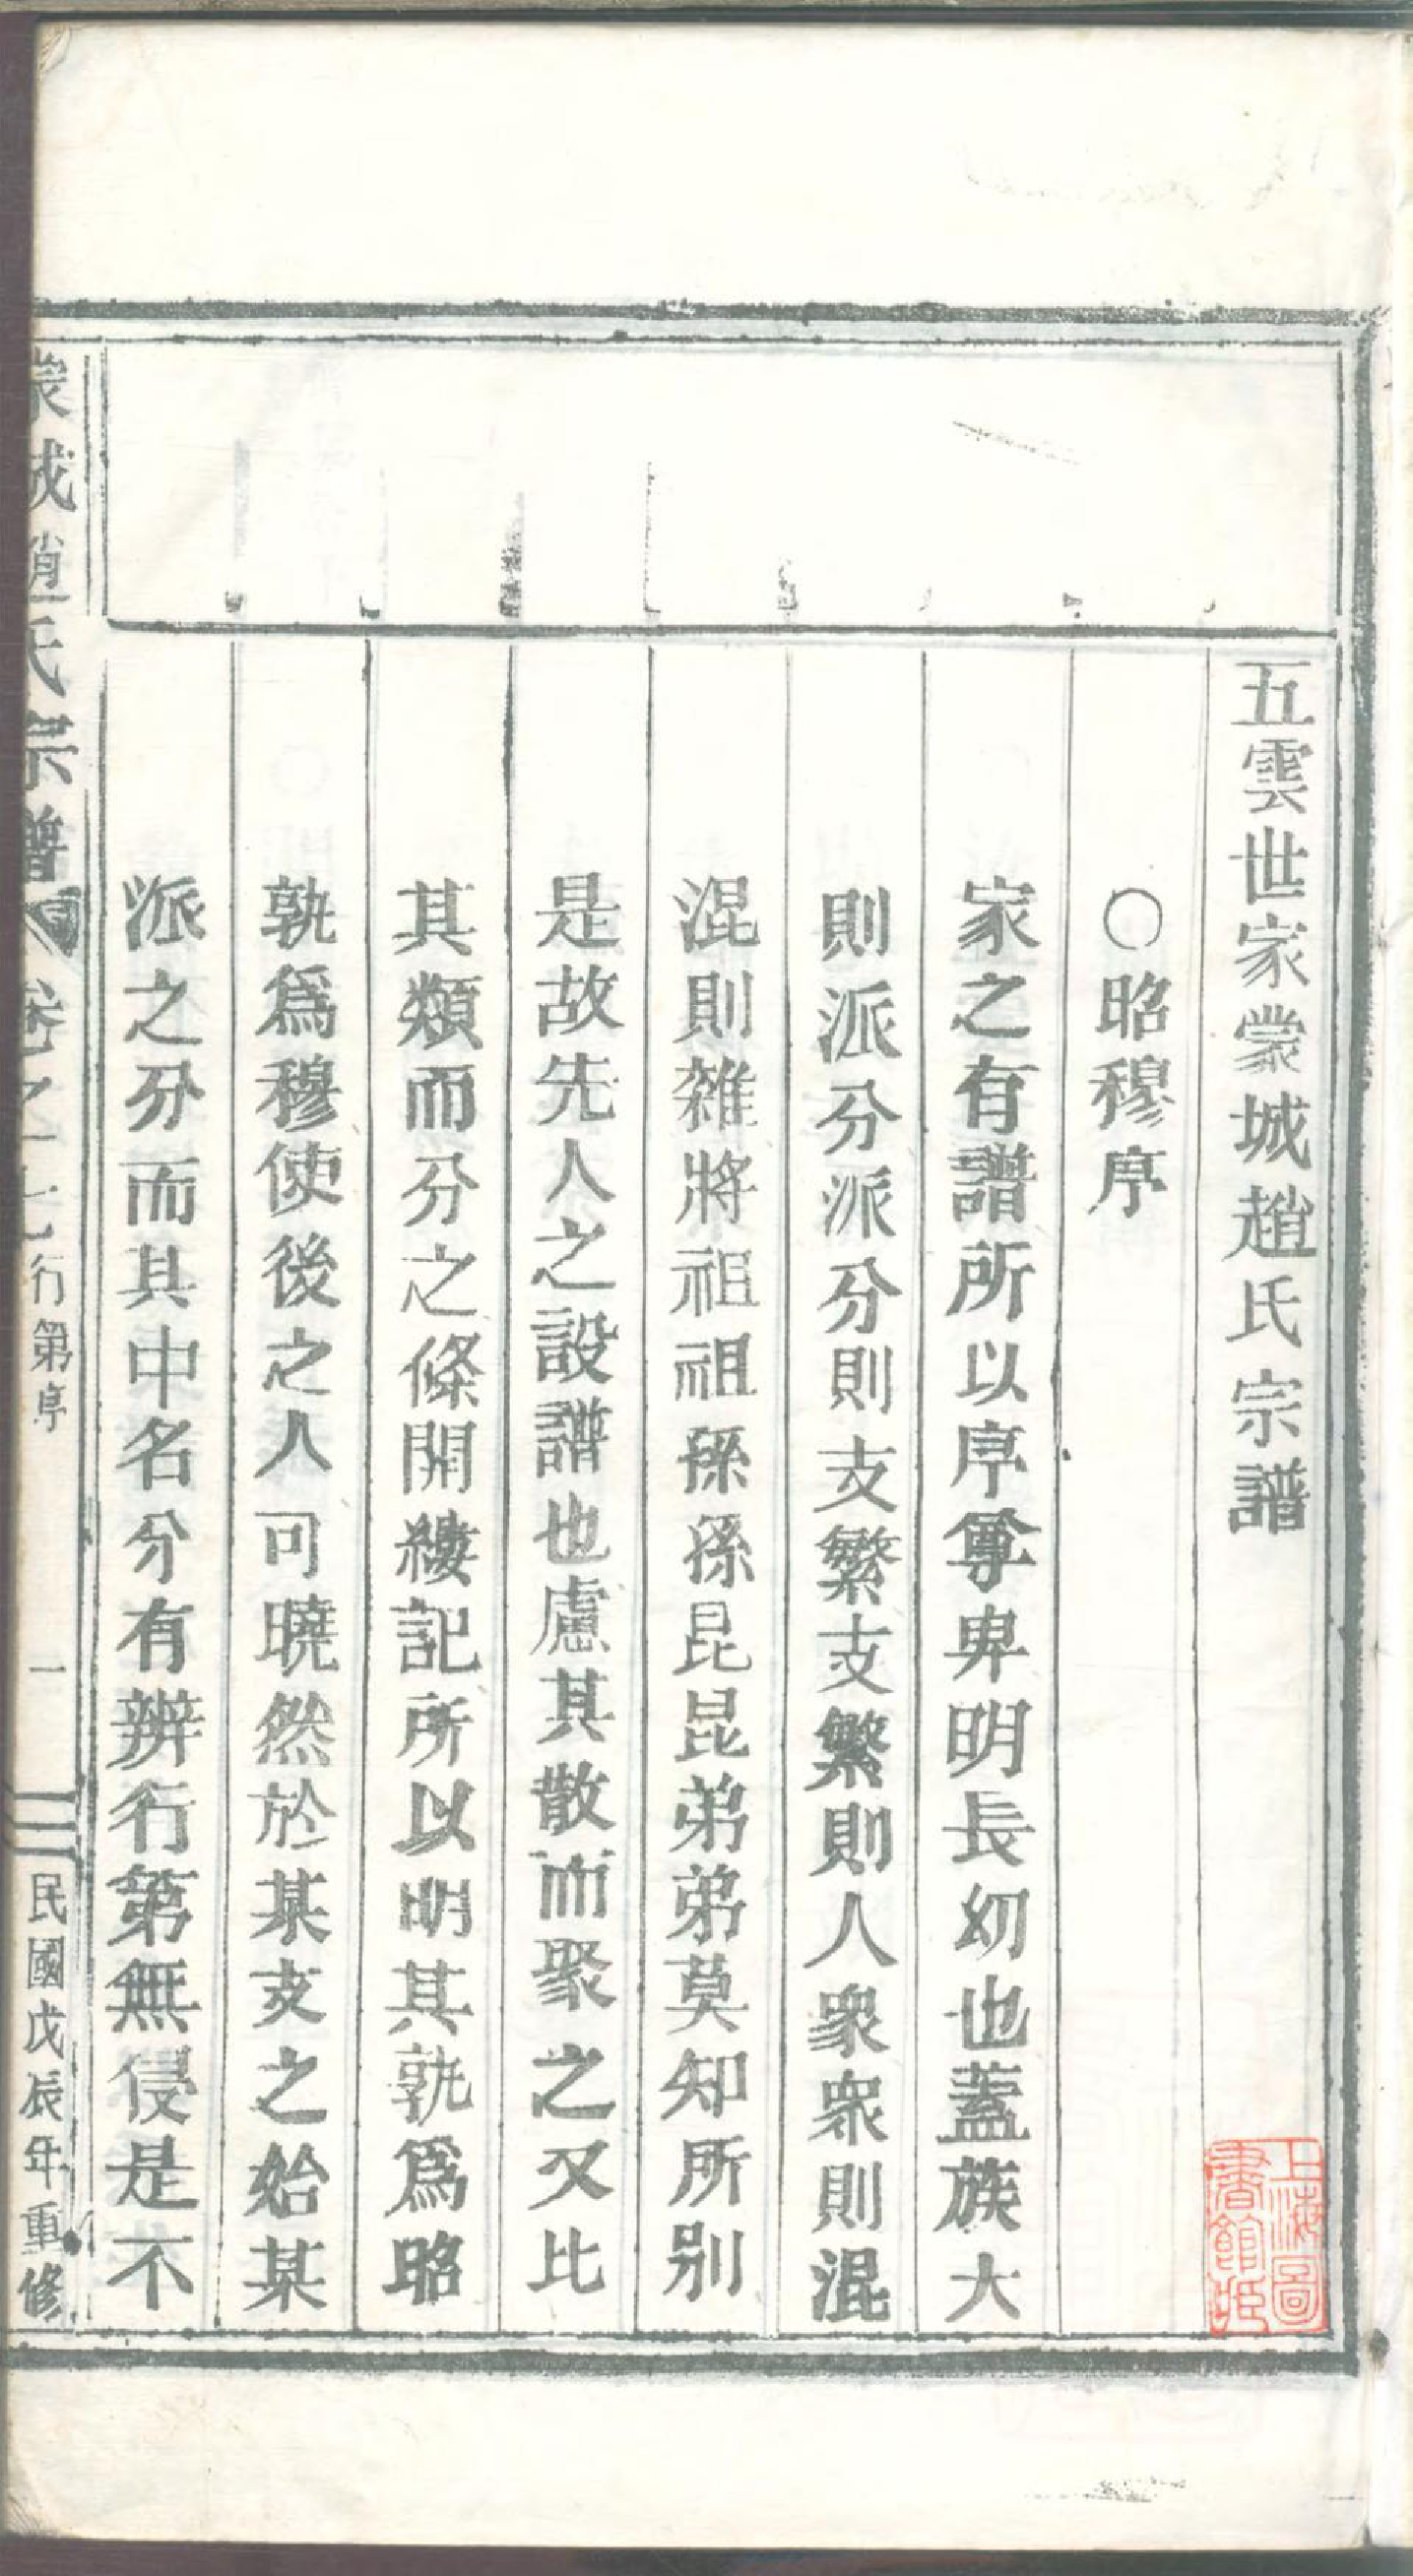 五雲世家蒙城趙氏宗譜
〇昭穆序
家之有譜所以序尊卑明長幼也蓋族大
則派分派分則支繁支繁則人衆衆則混
混則雜將祖祖孫孫昆昆弟弟莫知所別
是故先人之設譜也慮其散而聚之又比
其類而分之條開縷記所以明其孰爲昭
孰爲穆使後之人可曉然於某支之始某
派之分而其中名分有辨行第無侵是不
蒙城趙氏宗譜
卷之一七行第序
一
民國戊辰年重修
上海圖書館藏